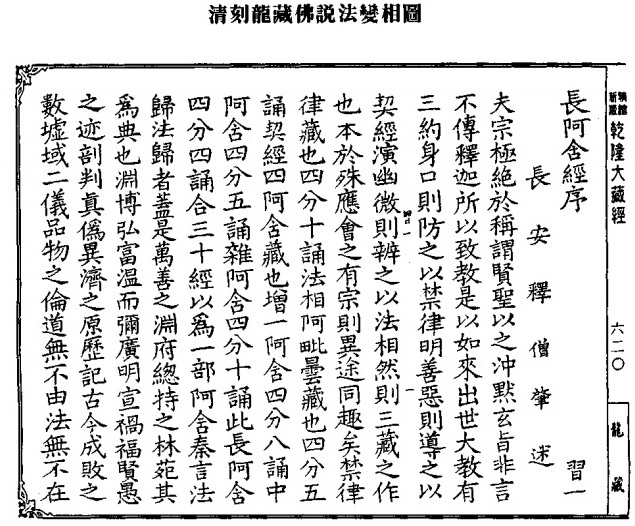 清刻龍藏佛説法變相圖
乾隆大藏經
六二〇
龍藏
長阿含經序 習一
長安釋僧肇述
夫宗極絶於稱謂賢聖以之沖默玄旨非言
不傳釋迦所以致教是以如來出世大教有
三約身口則防之以禁律明善惡則導之以
契經演幽微則辨之以法相然則三藏之作
也本於殊應會之有宗則異途同趣矣禁律
律藏也四分十誦法相阿毗曇藏也四分五
誦契經四阿含藏也增一阿含四分八誦中
阿含四分五誦雜阿含四分十誦此長阿含
四分四誦合三十經以爲一部阿含秦言法
歸法歸者蓋是萬善之淵府總持之林苑其
爲典也淵博弘富溫而彌廣明宣禍福賢愚
之迹剖判眞僞異濟之原歷記古今成敗之
數墟域二儀品物之倫道無不由法無不在